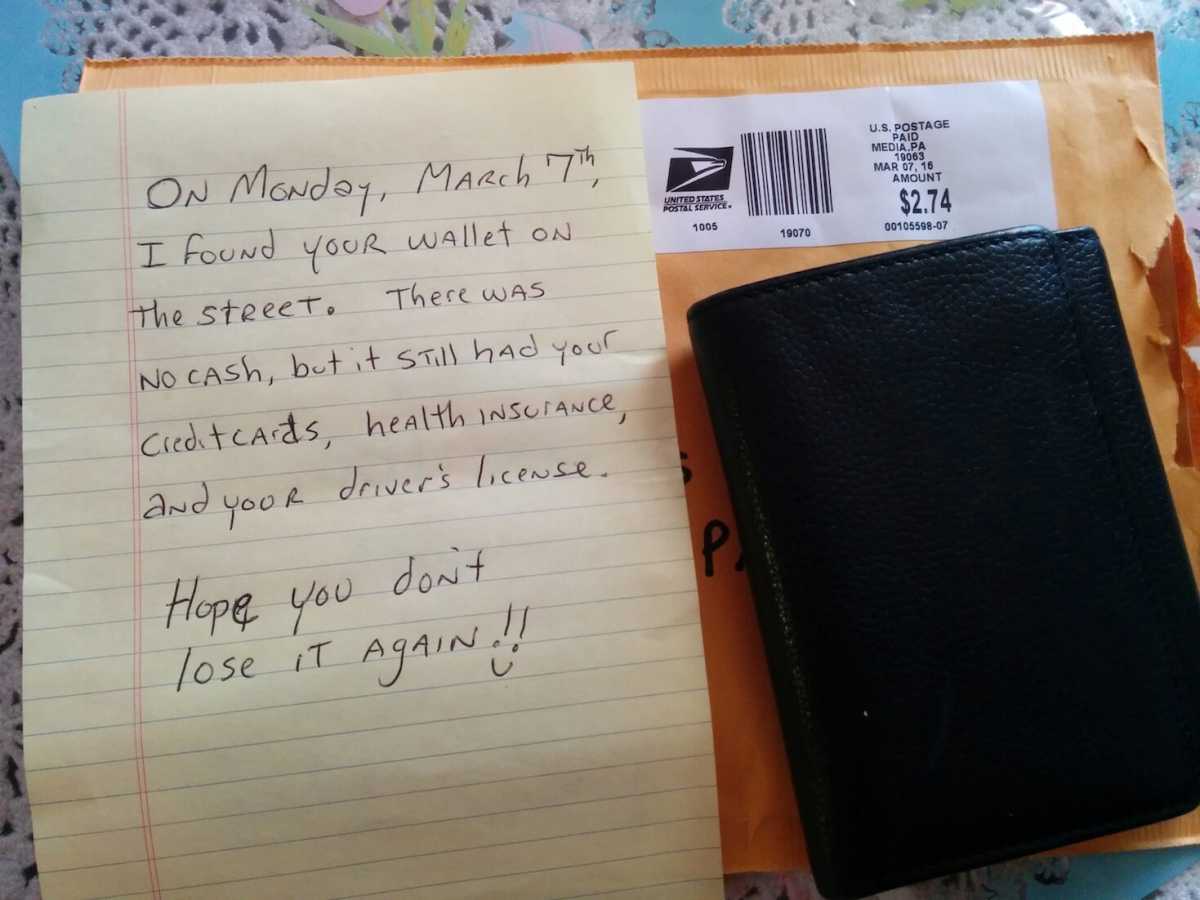 ON Monday, March 7th,
I found your wallet on
the street. There was
no cash, but it still had your
credit cards, health insurance,
and your driver's license.
Hope you don't
lose it again!!
UNITED STATES
POSTAL SERVICE.
1005
19070
U.S. POSTAGE
PAID
MEDIA,PA
19063
MAR 07, 16
AMOUNT
$2.74
00105598-07